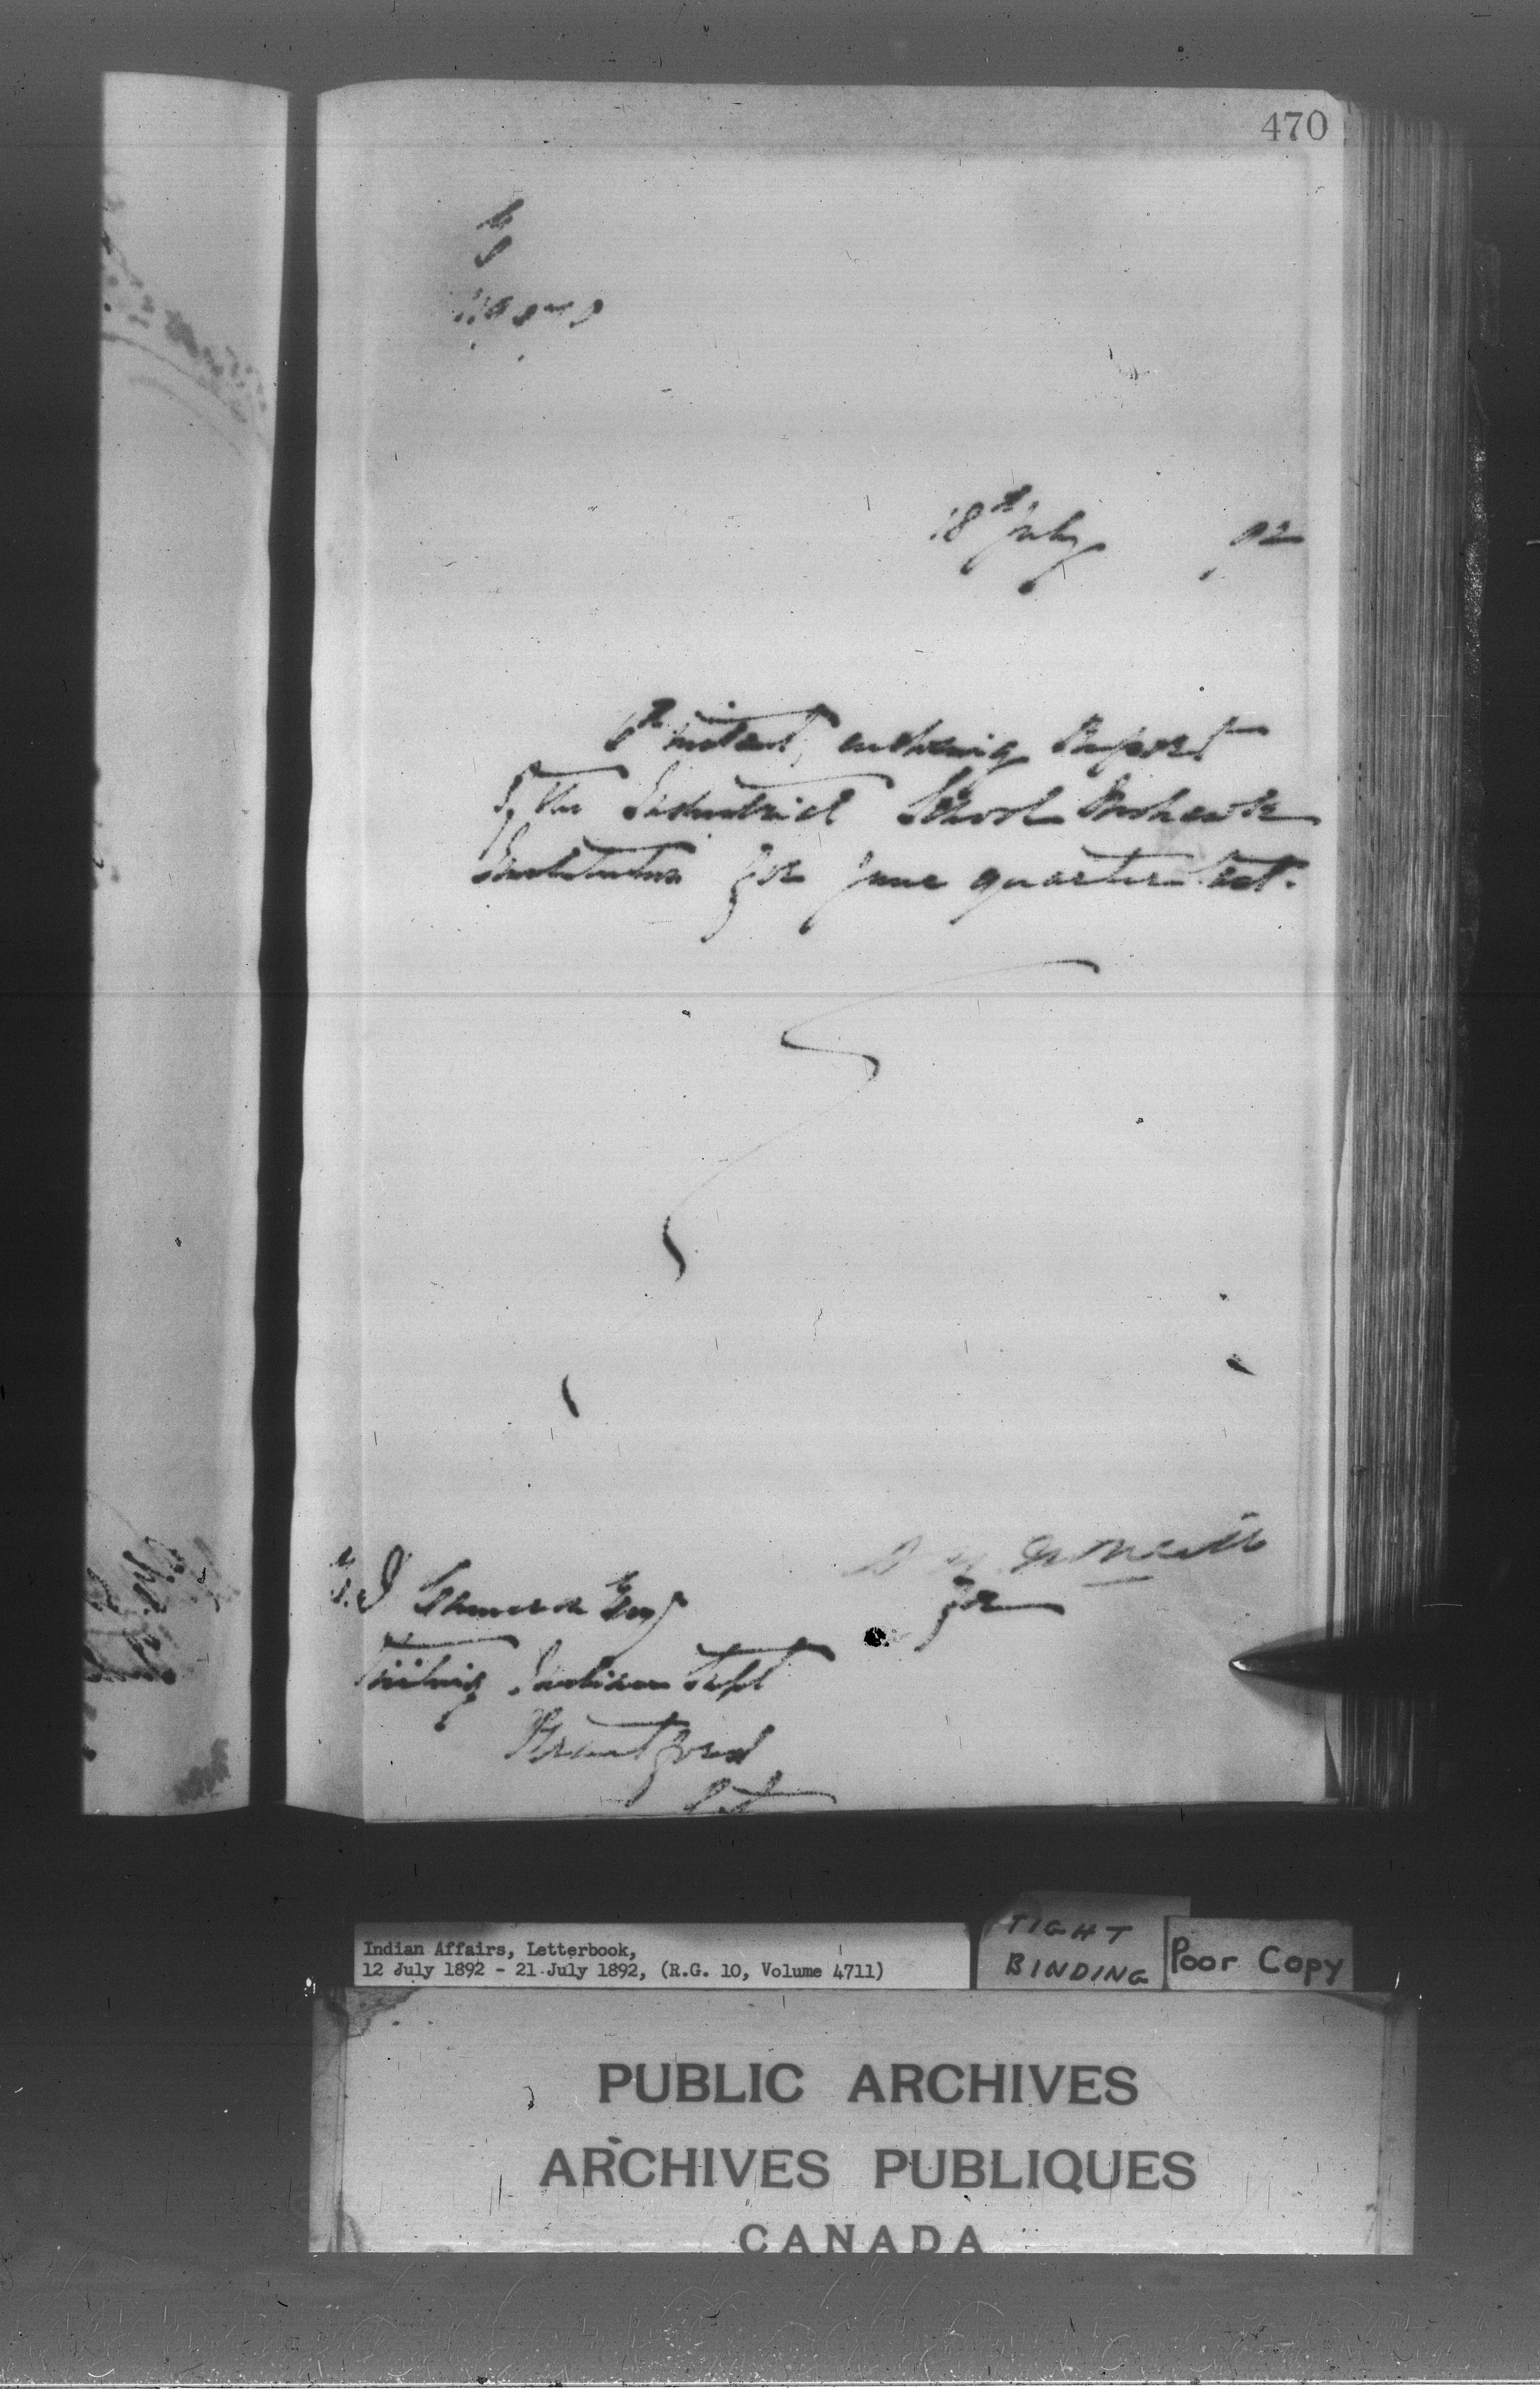 470
18th July 92
6th instant, enclosing Report
of the Industrial School Mohawk
Institution for June quarter last.
for
E. D. Cameron Esq
Visiting Indian Supt
Brantford
Ont
Indian Affairs, Letterbook,
12 July 1892 - 21 July 1892, (R.G. 10, Volume 4711)
TIGHT
BINDING
Poor Copy
PUBLIC ARCHIVES
ARCHIVES PUBLIQUES
CANADA